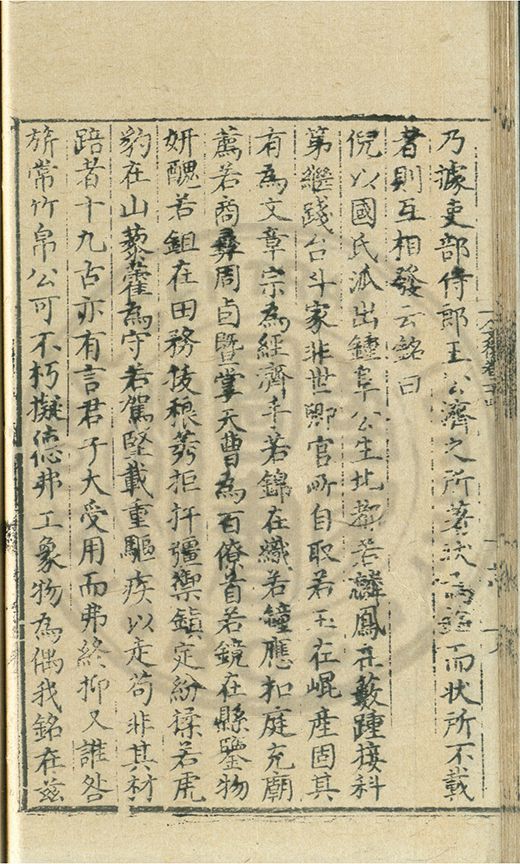 乃據吏部侍郎王公濟之所著狀為銘而狀所不載
者則互相發云銘曰
倪以國氏派出鍾阜公生北都若麟鳳在藪踵接科
第繼踐台斗家非世卿官所自取若玉在崐產固其
有為文章宗為經濟手若錦在織若鐘應扣庭充廟
薦若商彝周卣暨掌天曹為百僚首若鏡在縣鑒物
妍醜若鉏在田務筏稂莠拒扞彊禦鎮定紛揉若虎
豹在山藜藿為守若駕堅載重驅疾以走苟非其材
踣者十九古亦有言君子大受用而弗終抑又誰咎
旂常竹帛公可不朽擬德弗工象物為偶我銘在茲